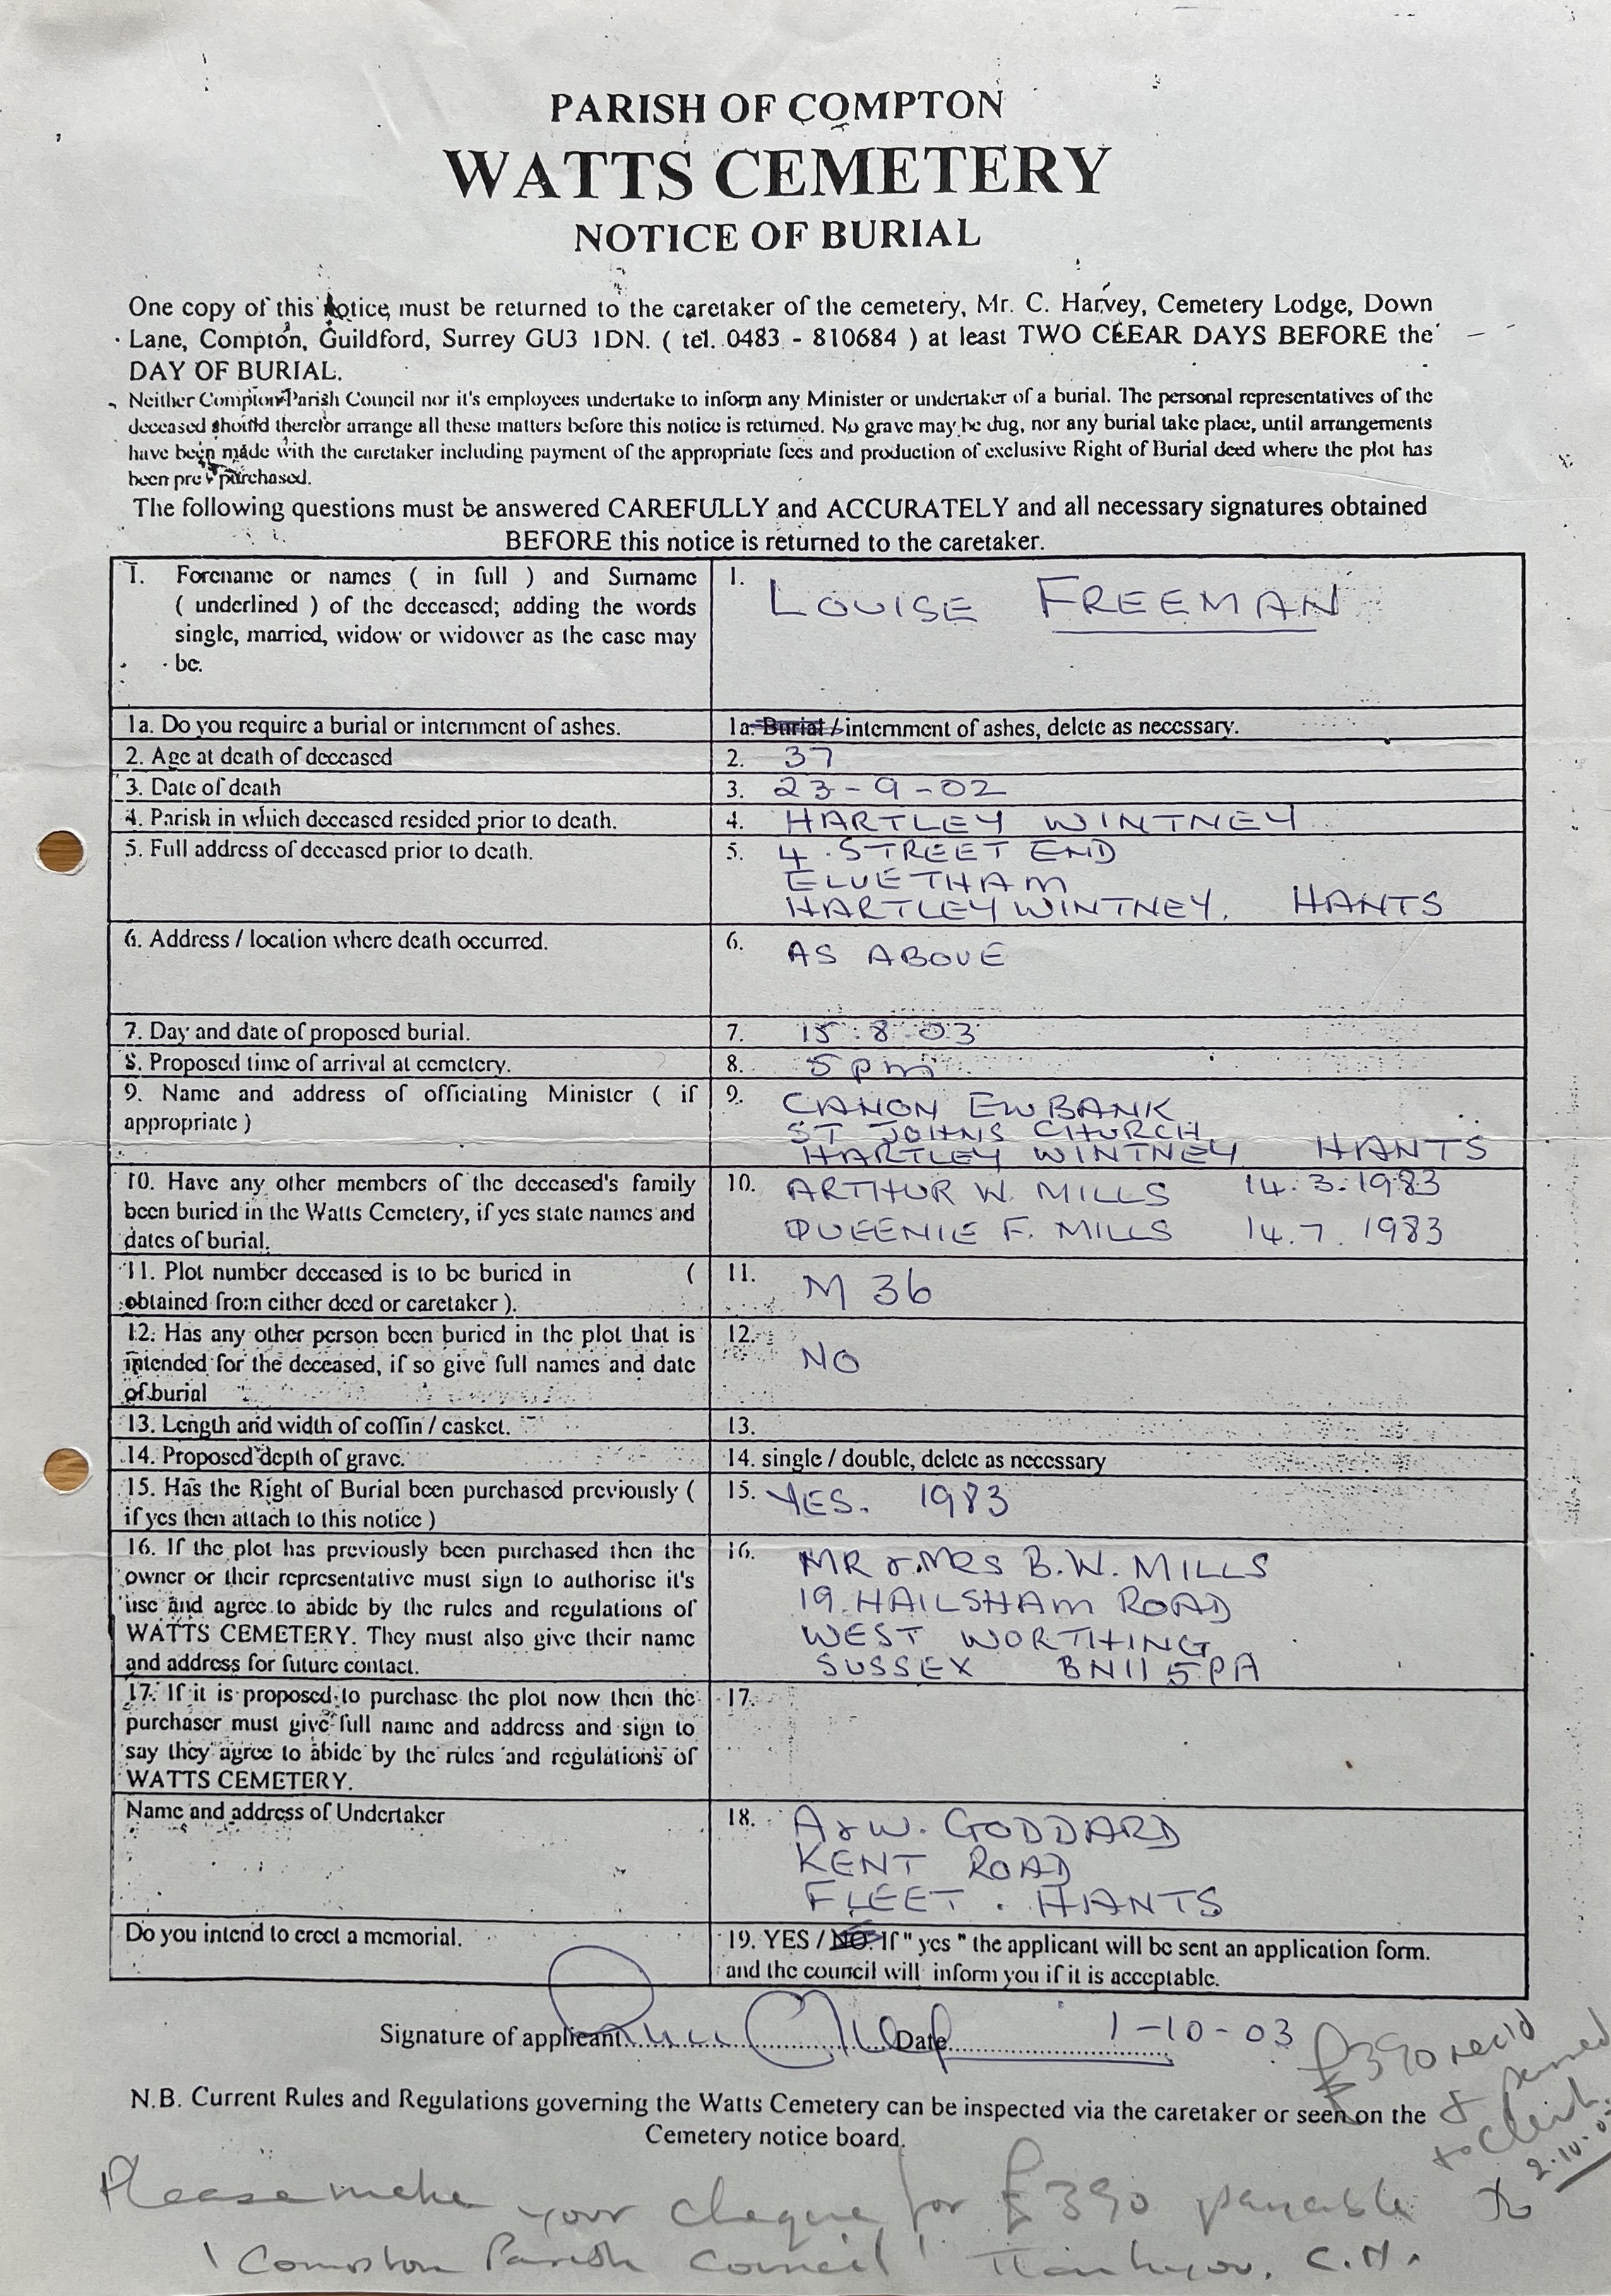 PARISH OF COMPTON
WATTS CEMETERY
NOTICE OF BURIAL
One copy of this notice must be returned to the caretaker of the cemetery, Mr. C. Harvey, Cemetery Lodge, Down
Lane, Compton, Guildford, Surrey GU3 1DN. ( tel. 0483 - 810684 ) at least TWO CLEAR DAYS BEFORE the
DAY OF BURIAL.
Neither Compton Parish Council nor it's employees undertake to inform any Minister or undertaker of a burial. The personal representatives of the
deceased should therefor arrange all these matters before this notice is returned. No grave may be dug, nor any burial take place, until arrangements
have been made with the caretaker including payment of the appropriate fees and production of exclusive Right of Burial deed where the plot has
been pre purchased.
The following questions must be answered CAREFULLY and ACCURATELY and all necessary signatures obtained
BEFORE this notice is returned to the caretaker.
1. Forename or names ( in full ) and Surname
( underlined ) of the deceased; adding the words
single, married, widow or widower as the case may
be.
1. LOUISE FREEMAN
1a. Do you require a burial or internment of ashes.
1a. Burial / internment of ashes, delete as necessary.
2. Age at death of deceased
2. 37
3. Date of death
3. 23-9-02
4. Parish in which deceased resided prior to death.
4. HARTLEY WINTNEY
5. Full address of deceased prior to death.
5. 4. STREET END
ELVETHAM
HARTLEY WINTNEY. HANTS
6. Address / location where death occurred.
6. AS ABOVE
7. Day and date of proposed burial.
7. 15.8.03
8. Proposed time of arrival at cemetery.
8. 5pm
9. Name and address of officiating Minister ( if
appropriate )
9. CANON EWBANK
ST JOHNS CHURCH
HARTLEY WINTNEY HANTS
10. Have any other members of the deceased's family
been buried in the Watts Cemetery, if yes state names and
dates of burial.
10. ARTHUR W. MILLS 14.3.1983
QUEENIE F. MILLS 14.7.1983
11. Plot number deceased is to be buried in (
obtained from either deed or caretaker ).
11. M 36
12. Has any other person been buried in the plot that is
intended for the deceased, if so give full names and date
of burial
12. NO
13. Length and width of coffin / casket.
13.
14. Proposed depth of grave.
14. single / double, delete as necessary
15. Has the Right of Burial been purchased previously (
if yes then attach to this notice )
15. YES. 1983
16. If the plot has previously been purchased then the
owner or their representative must sign to authorise it's
use and agree to abide by the rules and regulations of
WATTS CEMETERY. They must also give their name
and address for future contact.
16. MR & MRS B.W. MILLS
19. HAILSHAM ROAD
WEST WORTHING
SUSSEX BN11 5PA
17. If it is proposed to purchase the plot now then the
purchaser must give full name and address and sign to
say they agree to abide by the rules and regulations of
WATTS CEMETERY.
17.
Name and address of Undertaker
18. A & W. GODDARD
KENT ROAD
FLEET. HANTS
Do you intend to erect a memorial.
19. YES / NO. If " yes " the applicant will be sent an application form.
and the council will inform you if it is acceptable.
Signature of applicant Date 1-10-03
£390 rec'd
& passed
to Clerk.
2.10.03
N.B. Current Rules and Regulations governing the Watts Cemetery can be inspected via the caretaker or seen on the
Cemetery notice board.
Please make your cheque for £390 payable to
'Compton Parish Council' Thankyou. C.H.